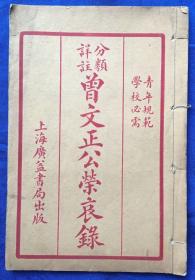 青年規範
學校必需
分類
詳註
曾文正公榮哀錄
上海廣益書局出版